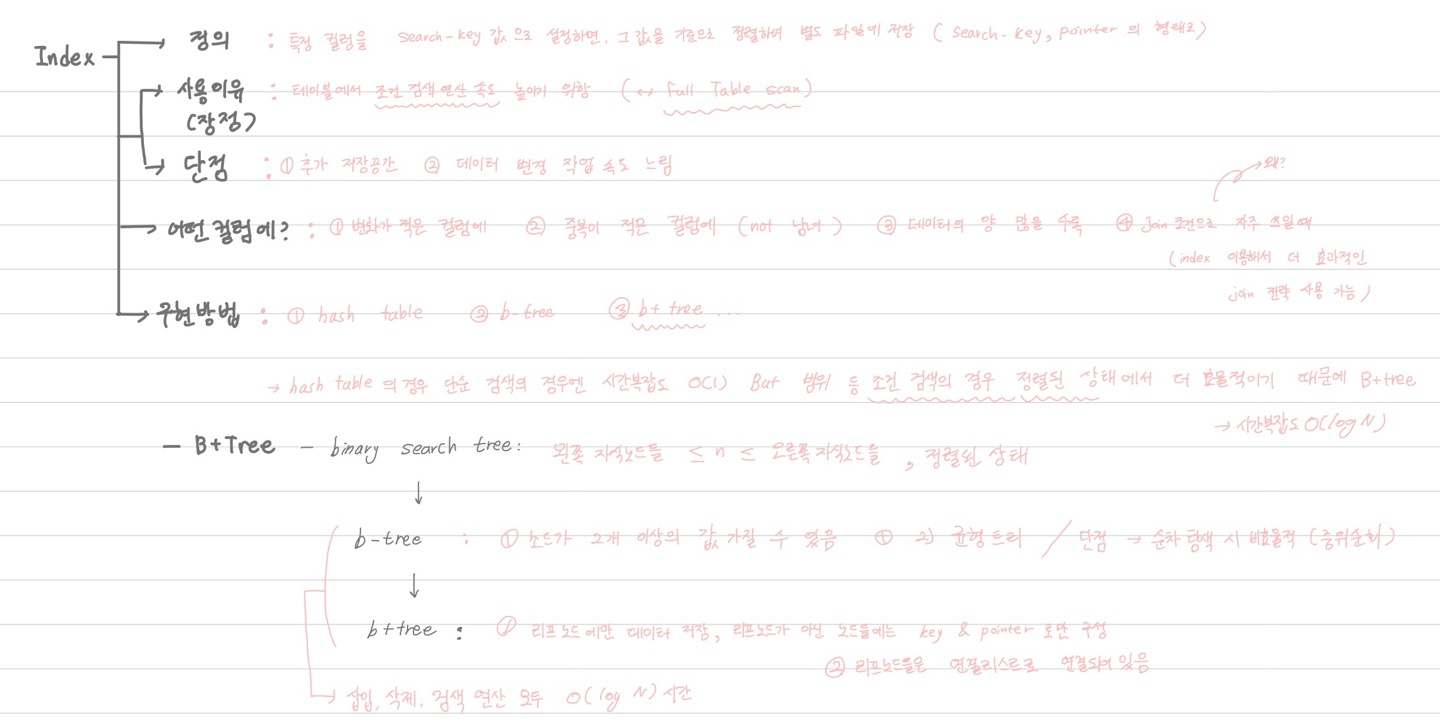 Index → 정의 : 특정 컬럼을 search-key 값으로 설정하면, 그 값을 기준으로 정렬하여 별도 파일에 저장 ( search-key, pointer 의 형태로)
사용이유 : 테이블에서 조건 검색 연산 속도 높이기 위함 (↔ Full Table scan)
(장점)
단점 : ① 추가 저장공간 ② 데이터 변경 작업 속도 느림
왜?
어떤 컬럼에? : ① 변화가 적은 컬럼에 ② 중복이 적은 컬럼에 (not 남녀) ③ 데이터의 양 많을 수록 ④ join 조건으로 자주 쓰일때
(index 이용해서 더 효과적인
join 전략 사용 가능)
구현방법 : ① hash table ② b-tree ③ b+ tree ...
→ hash table 의 경우 단순 검색의 경우엔 시간복잡도 O(1) But 범위 등 조건 검색의 경우 정렬된 상태에서 더 효율적이기 때문에 B+tree
→ 시간복잡도 O(log N)
- B+Tree - binary search tree: 왼쪽 자식노드들 ≤ n ≤ 오른쪽 자식노드들 , 정렬된 상태
↓
b-tree : ① 노드가 2개 이상의 값 가질 수 있음 ① 2) 균형트리 / 단점 → 순차 탐색 시 비효율적 (중위순회)
↓
b+tree : ① 리프노드에만 데이터 저장, 리프노드가 아닌 노드들에는 key & pointer 로만 구성
② 리프노드들은 연결리스트로 연결되어 있음
→ 삽입, 삭제, 검색 연산 모두 O(log N) 시간